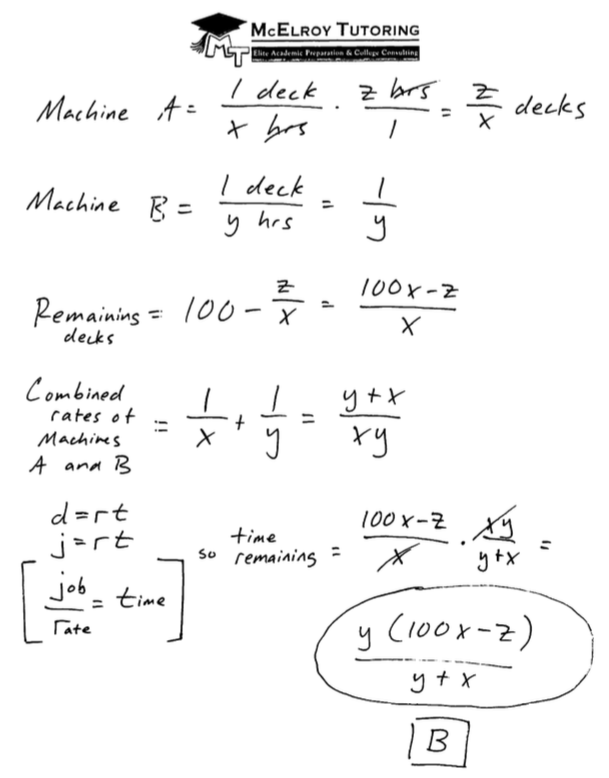 McElroy Tutoring
MT
Elite Academic Preparation & College Consulting
Machine A = 1 deck / x hrs · z hrs / 1 = z/x decks
Machine B = 1 deck / y hrs = 1/y
Remaining decks = 100 - z/x = 100x-z / x
Combined rates of Machines A and B := 1/x + 1/y = y+x / xy
d=rt
j=rt
[job/rate = time] so time remaining = 100x-z / x · xy / y+x =
y (100x-z) / y+x
B